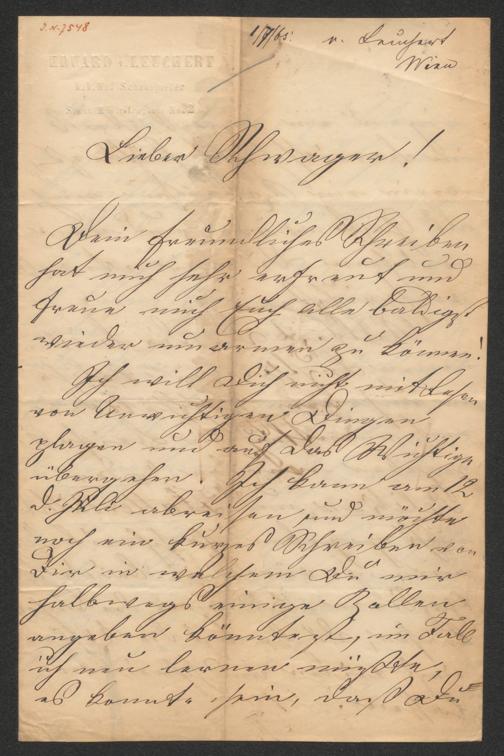 J.N. 7548
1/7/65. v. Leuchert
Wien
EDUARD v. LEUCHERT
k.k. Hof Schauspieler
Lieber Schwager!
Dein freundliches Schreiben
hat mich sehr erfreut und
freue mich Euch alle baldigst
wieder umarmen zu können!
Ich will Dich nicht mit Lesen
von Unwichtigen Dingen
plagen und auf das Wichtige
übergehen. Ich kann am 12
d. M. abreisen und möchte
noch ein kurzes Schreiben von
Dir in welchem Du mir
halbwegs einige Rollen
angeben könntest, im Fall
ich neu lernen müßte,
es könnte sein, daß Du